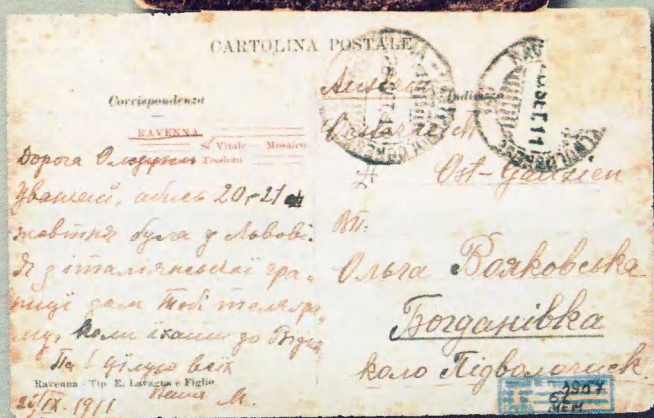 CARTOLINA POSTALE
Corrispondenza
RAVENNA
S. Vitale - Mosaico
Teodora
Дорога
Уважай, абись 20,-21
жовтня була у Львові.
Я з італіянської гра-
ниці дам Тобі телєгра-
му, коли їхати до Відня
Па! Цілую всіх
Ravenna - Tip. E. Lavagna e Figlio
26/IX. 1911 М.
Austria
Oesterreich
Ost-Galizien
ВП.
Ольга Вояковська
Богданівка
коло Підволочиск.
SET. 11